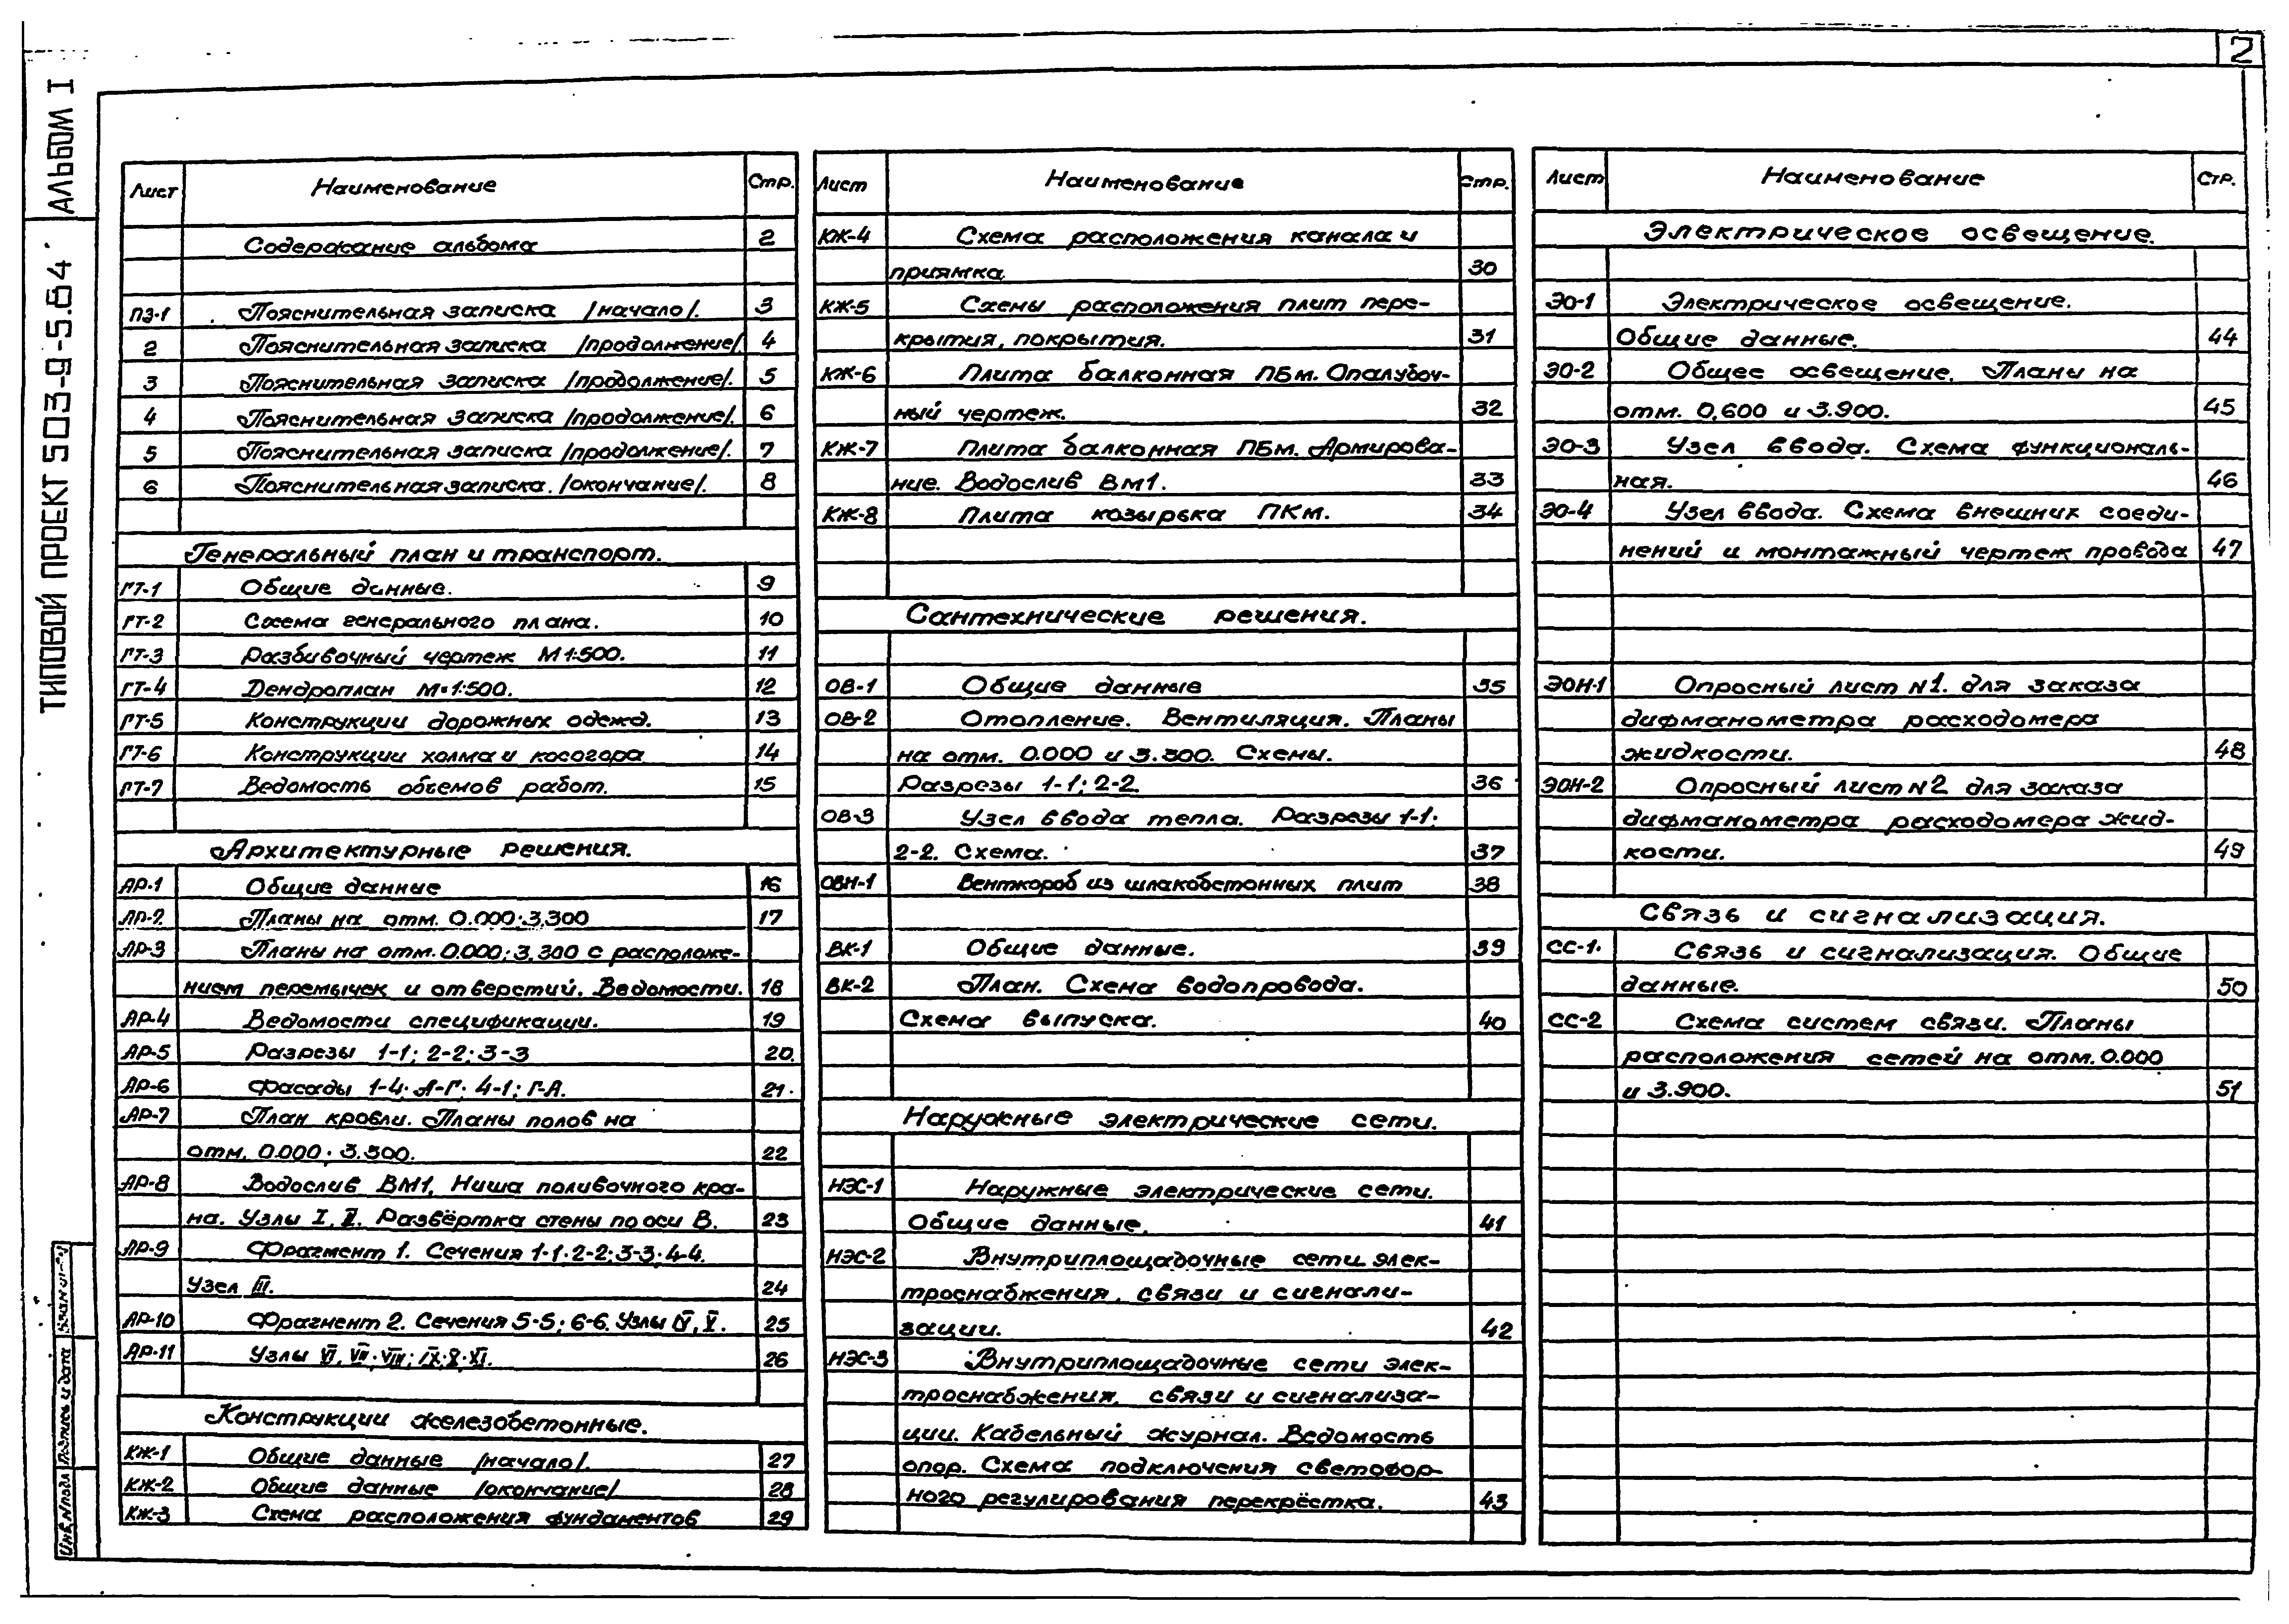 2
АЛЬБОМ I
ТИПОВОЙ ПРОЕКТ 503-9-5.84
Лист Наименование Стр.
Содержание альбома 2
ПЗ-1 Пояснительная записка /начало/. 3
2 Пояснительная записка /продолжение/. 4
3 Пояснительная записка /продолжение/. 5
4 Пояснительная записка /продолжение/. 6
5 Пояснительная записка /продолжение/. 7
6 Пояснительная записка. /окончание/. 8
Генеральный план и транспорт.
ГТ-1 Общие данные. 9
ГТ-2 Схема генерального плана. 10
ГТ-3 Разбивочный чертеж М1:500. 11
ГТ-4 Дендроплан М=1:500. 12
ГТ-5 Конструкции дорожных одежд. 13
ГТ-6 Конструкции холма и косогора 14
ГТ-7 Ведомость объемов работ. 15
Архитектурные решения.
АР-1 Общие данные 16
АР-2 Планы на отм. 0.000; 3,300 17
АР-3 Планы на отм. 0.000; 3,300 с расположе-
нием перемычек и отверстий. Ведомости. 18
АР-4 Ведомости спецификации. 19
АР-5 Разрезы 1-1; 2-2; 3-3 20
АР-6 Фасады 1-4; А-Г; 4-1; Г-А. 21
АР-7 План кровли. Планы полов на
отм. 0.000; 3.300. 22
АР-8 Водослив ВМ1, Ниша поливочного кра-
на. Узлы I, II. Развёртка стены по оси В. 23
АР-9 Фрагмент 1. Сечения 1-1; 2-2; 3-3; 4-4.
Узел III. 24
АР-10 Фрагмент 2. Сечения 5-5; 6-6. Узлы IV, V. 25
АР-11 Узлы VI, VII; VIII; IX; X; XI. 26
Конструкции железобетонные.
КЖ-1 Общие данные /начало/. 27
КЖ-2 Общие данные /окончание/ 28
КЖ-3 Схема расположения фундаментов 29
Лист Наименование Стр.
КЖ-4 Схема расположения канала и
приямка 30
КЖ-5 Схемы расположения плит пере-
крытия, покрытия. 31
КЖ-6 Плита балконная ПБм. Опалубоч-
ный чертеж. 32
КЖ-7 Плита балконная ПБм. Армирова-
ние. Водослив ВМ1. 33
КЖ-8 Плита козырька ПКм. 34
Сантехнические решения.
ОВ-1 Общие данные 35
ОВ-2 Отопление. Вентиляция. Планы
на отм. 0.000 и 3.300. Схемы.
Разрезы 1-1; 2-2. 36
ОВ-3 Узел ввода тепла. Разрезы 1-1;
2-2. Схема. 37
ОВН-1 Венткороб из шлакобетонных плит 38
ВК-1 Общие данные. 39
ВК-2 План. Схема водопровода.
Схема выпуска. 40
Наружные электрические сети.
НЭС-1 Наружные электрические сети.
Общие данные. 41
НЭС-2 Внутриплощадочные сети элек-
троснабжения, связи и сигнали-
зации. 42
НЭС-3 Внутриплощадочные сети элек-
троснабжения, связи и сигнализа-
ции. Кабельный журнал. Ведомость
опор. Схема подключения светофор-
ного регулирования перекрёстка. 43
Лист Наименование Стр.
Электрическое освещение.
ЭО-1 Электрическое освещение.
Общие данные. 44
ЭО-2 Общее освещение. Планы на
отм. 0,600 и 3.900. 45
ЭО-3 Узел ввода. Схема функциональ-
ная. 46
ЭО-4 Узел ввода. Схема внешних соеди-
нений и монтажный чертеж провода 47
ЭОН-1 Опросный лист N1. для заказа
дифманометра расходомера
жидкости. 48
ЭОН-2 Опросный лист N2 для заказа
дифманометра расходомера жид-
кости. 49
Связь и сигнализация.
СС-1. Связь и сигнализация. Общие
данные. 50
СС-2 Схема систем связи. Планы
расположения сетей на отм. 0.000
и 3.900. 51
Инв.№подл Подпись и дата Взам инв.№